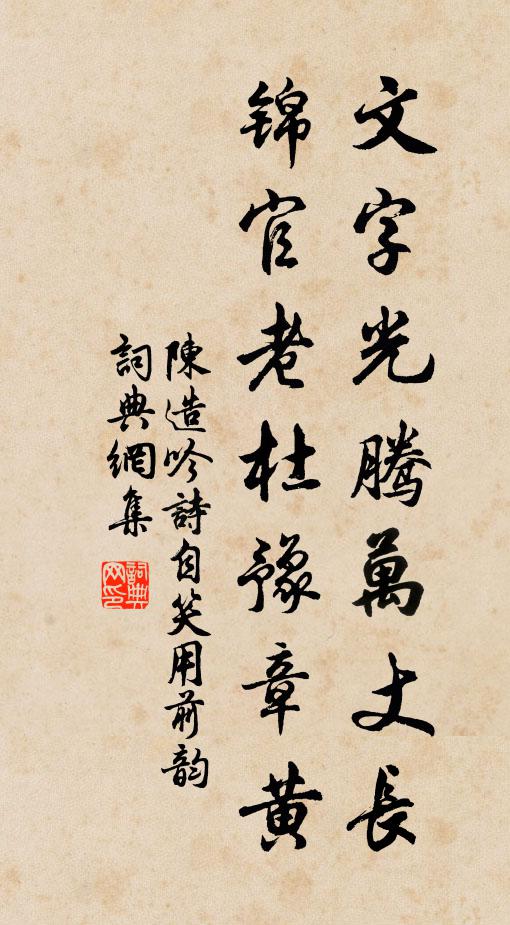 文字光騰萬丈長
錦官老杜豫章黄
陳造吟詩自笑用前韵
詞典網集
詞典
网印